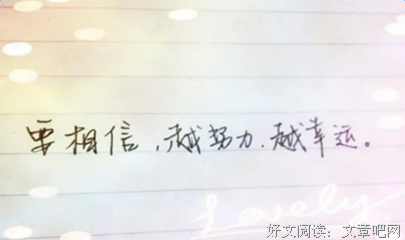 要相信，越努力.越幸运。
Lovely
好文阅读：文章吧网